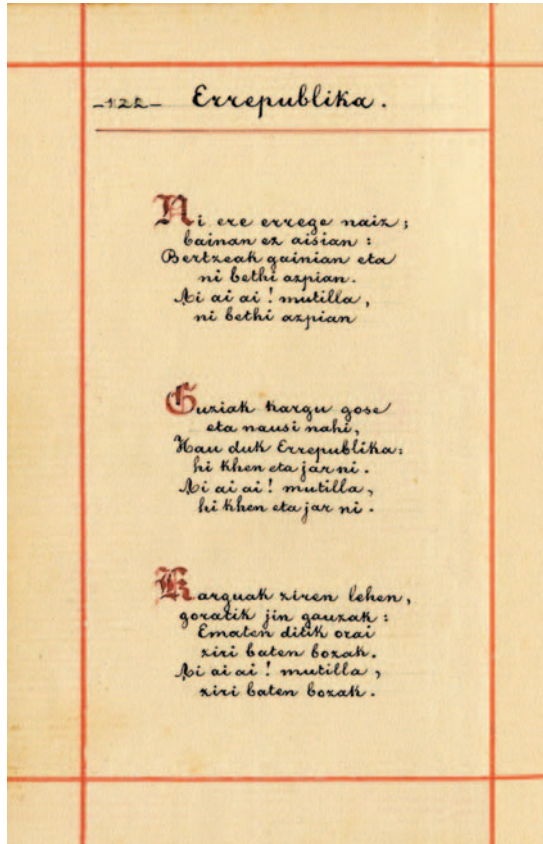 -122- Errepublika.
Ni ere errege naiz ;
bainan ez aisian :
Bertzeak gainian eta
ni bethi azpian.
Ai ai ai ! mutilla ,
ni bethi azpian
Guziak kargu gose
eta nausi nahi,
Hau duk Errepublika:
hi khen eta jar ni.
Ai ai ai ! mutilla ,
hi khen eta jar ni.
Karguak ziren lehen,
goratik jin gauzak :
Ematen ditik orai
ziri baten bozak.
Ai ai ai ! mutilla ,
ziri baten bozak.